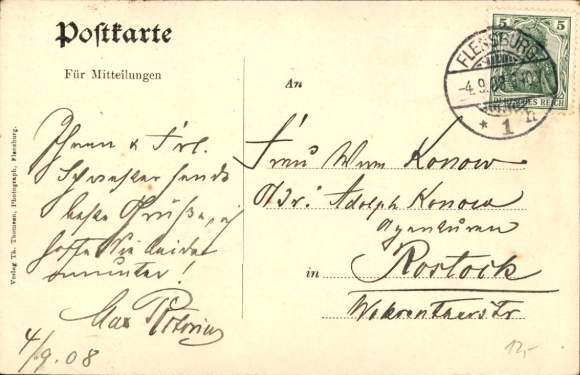 Postkarte
Für Mitteilungen
An
Verlag Th. Thomsen, Photograph, Flensburg.
FLENSBURG
-4.9.08
* 1 n
5 5
DEUTSCHES REICH
Ihnen & Frl.
Schwester sende
beste Grüße, ich
hoffe Sie beide
munter!
Max
4/9.08
Frau Wwe Konow
Adr: Adolph Konow
Agenturen
in Rostock
12,-